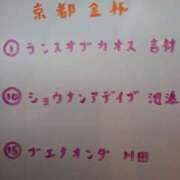 京都金杯
① ランスオブカオス 吉村
⑩ ショウナンアデイブ 池添
⑮ ブエナオンダ 川田